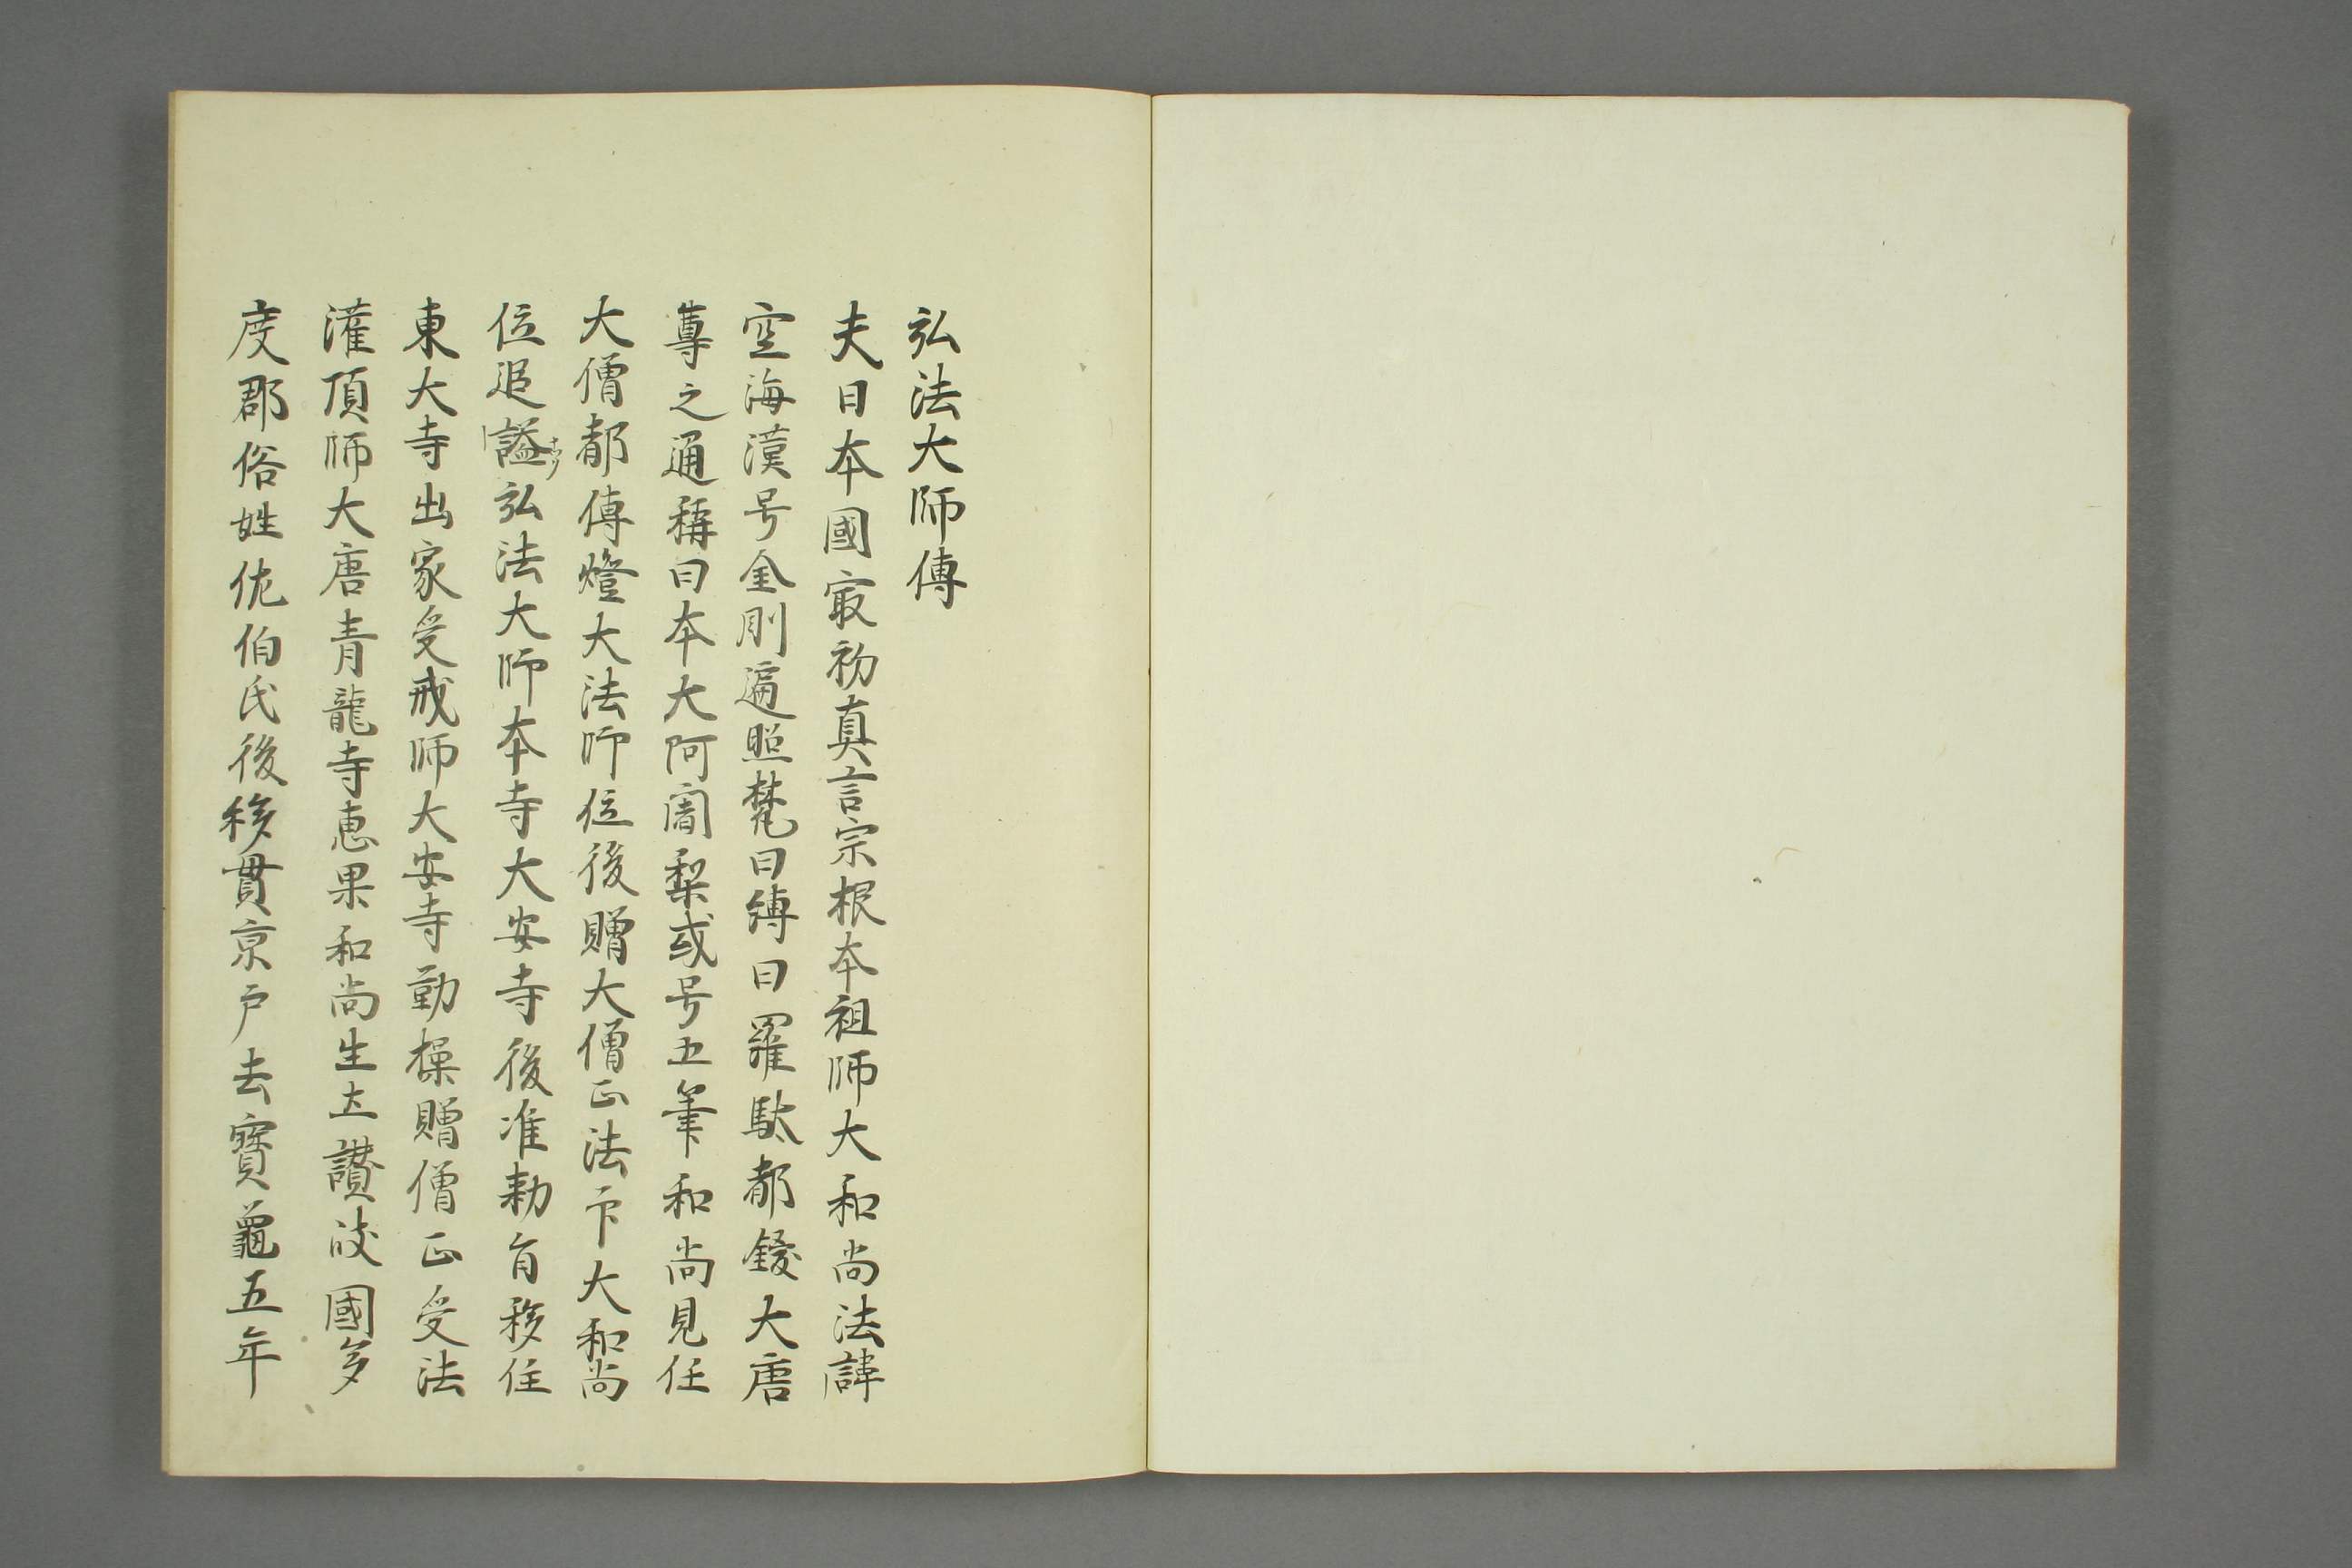 弘法大師傳
夫日本國寂初真言宗根本祖師大和尚法諱
空海漢号金剛遍照梵曰縛曰羅駄都鑁大唐
尊之通稱曰本大阿闍梨或号五筆和尚見任
大僧都傳燈大法師位後贈大僧正法印大和尚
位追謚弘法大師本寺大安寺後准勅旨移住
東大寺出家受戒師大安寺勤操贈僧正受法
灌頂師大唐青龍寺惠果和尚生土讃岐國多
度郡俗姓佐伯氏後移貫京戸去寳龜五年